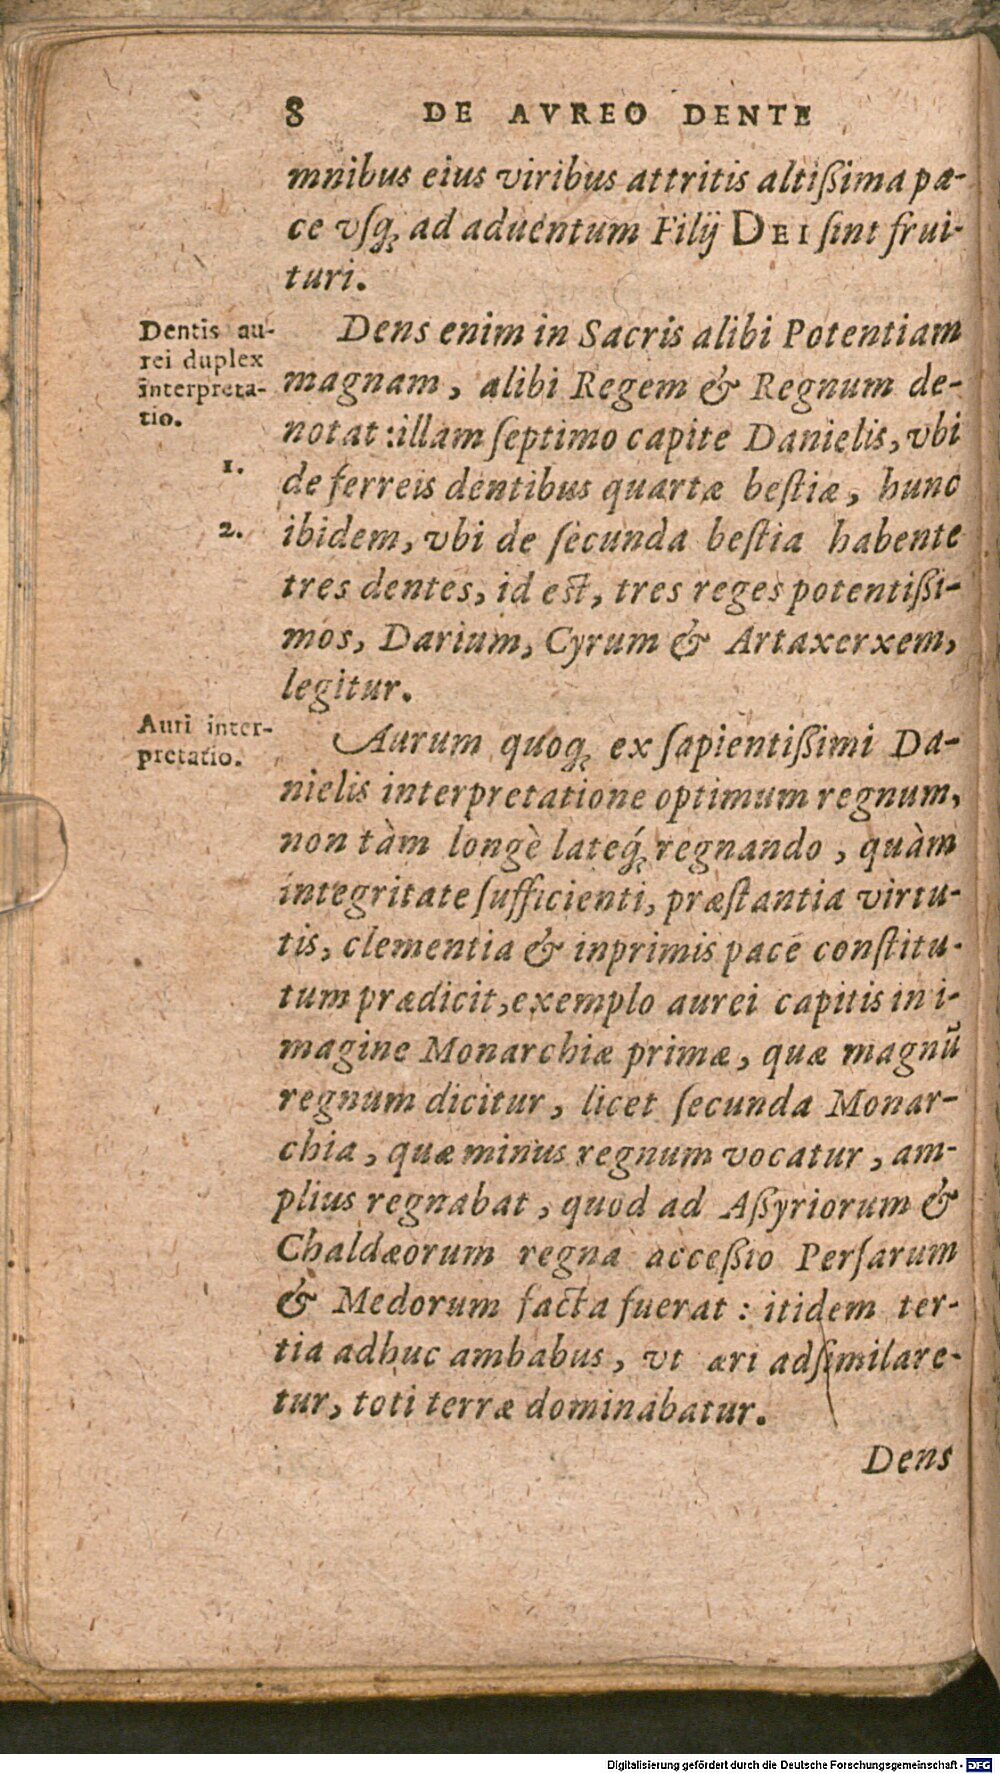 8 DE AVREO DENTE
mnibus eius viribus attritis altißima pa-
ce vſq; ad aduentum Filij DEI ſint frui-
turi.
Dentis au-
rei duplex
interpreta-
tio.
Dens enim in Sacris alibi Potentiam
magnam, alibi Regem & Regnum de-
notat: illam ſeptimo capite Danielis, vbi
1.
de ferreis dentibus quartæ beſtiæ, hunc
2.
ibidem, vbi de ſecunda beſtia habente
tres dentes, id eſt, tres reges potentißi-
mos, Darium, Cyrum & Artaxerxem,
legitur.
Auri inter-
pretatio.
Aurum quoq; ex ſapientißimi Da-
nielis interpretatione optimum regnum,
non tàm longè lateq́; regnando, quàm
integritate ſufficienti, præſtantia virtu-
tis, clementia & inprimis pace conſtitu-
tum prædicit, exemplo aurei capitis in i-
magine Monarchiæ primæ, quæ magnū
regnum dicitur, licet ſecunda Monar-
chia, quæ minus regnum vocatur, am-
plius regnabat, quod ad Aßyriorum &
Chaldæorum regna acceßio Perſarum
& Medorum facta fuerat: itidem ter-
tia adhuc ambabus, vt æri adſimilare-
tur, toti terræ dominabatur.
Dens
Digitalisierung gefördert durch die Deutsche Forschungsgemeinschaft - DFG